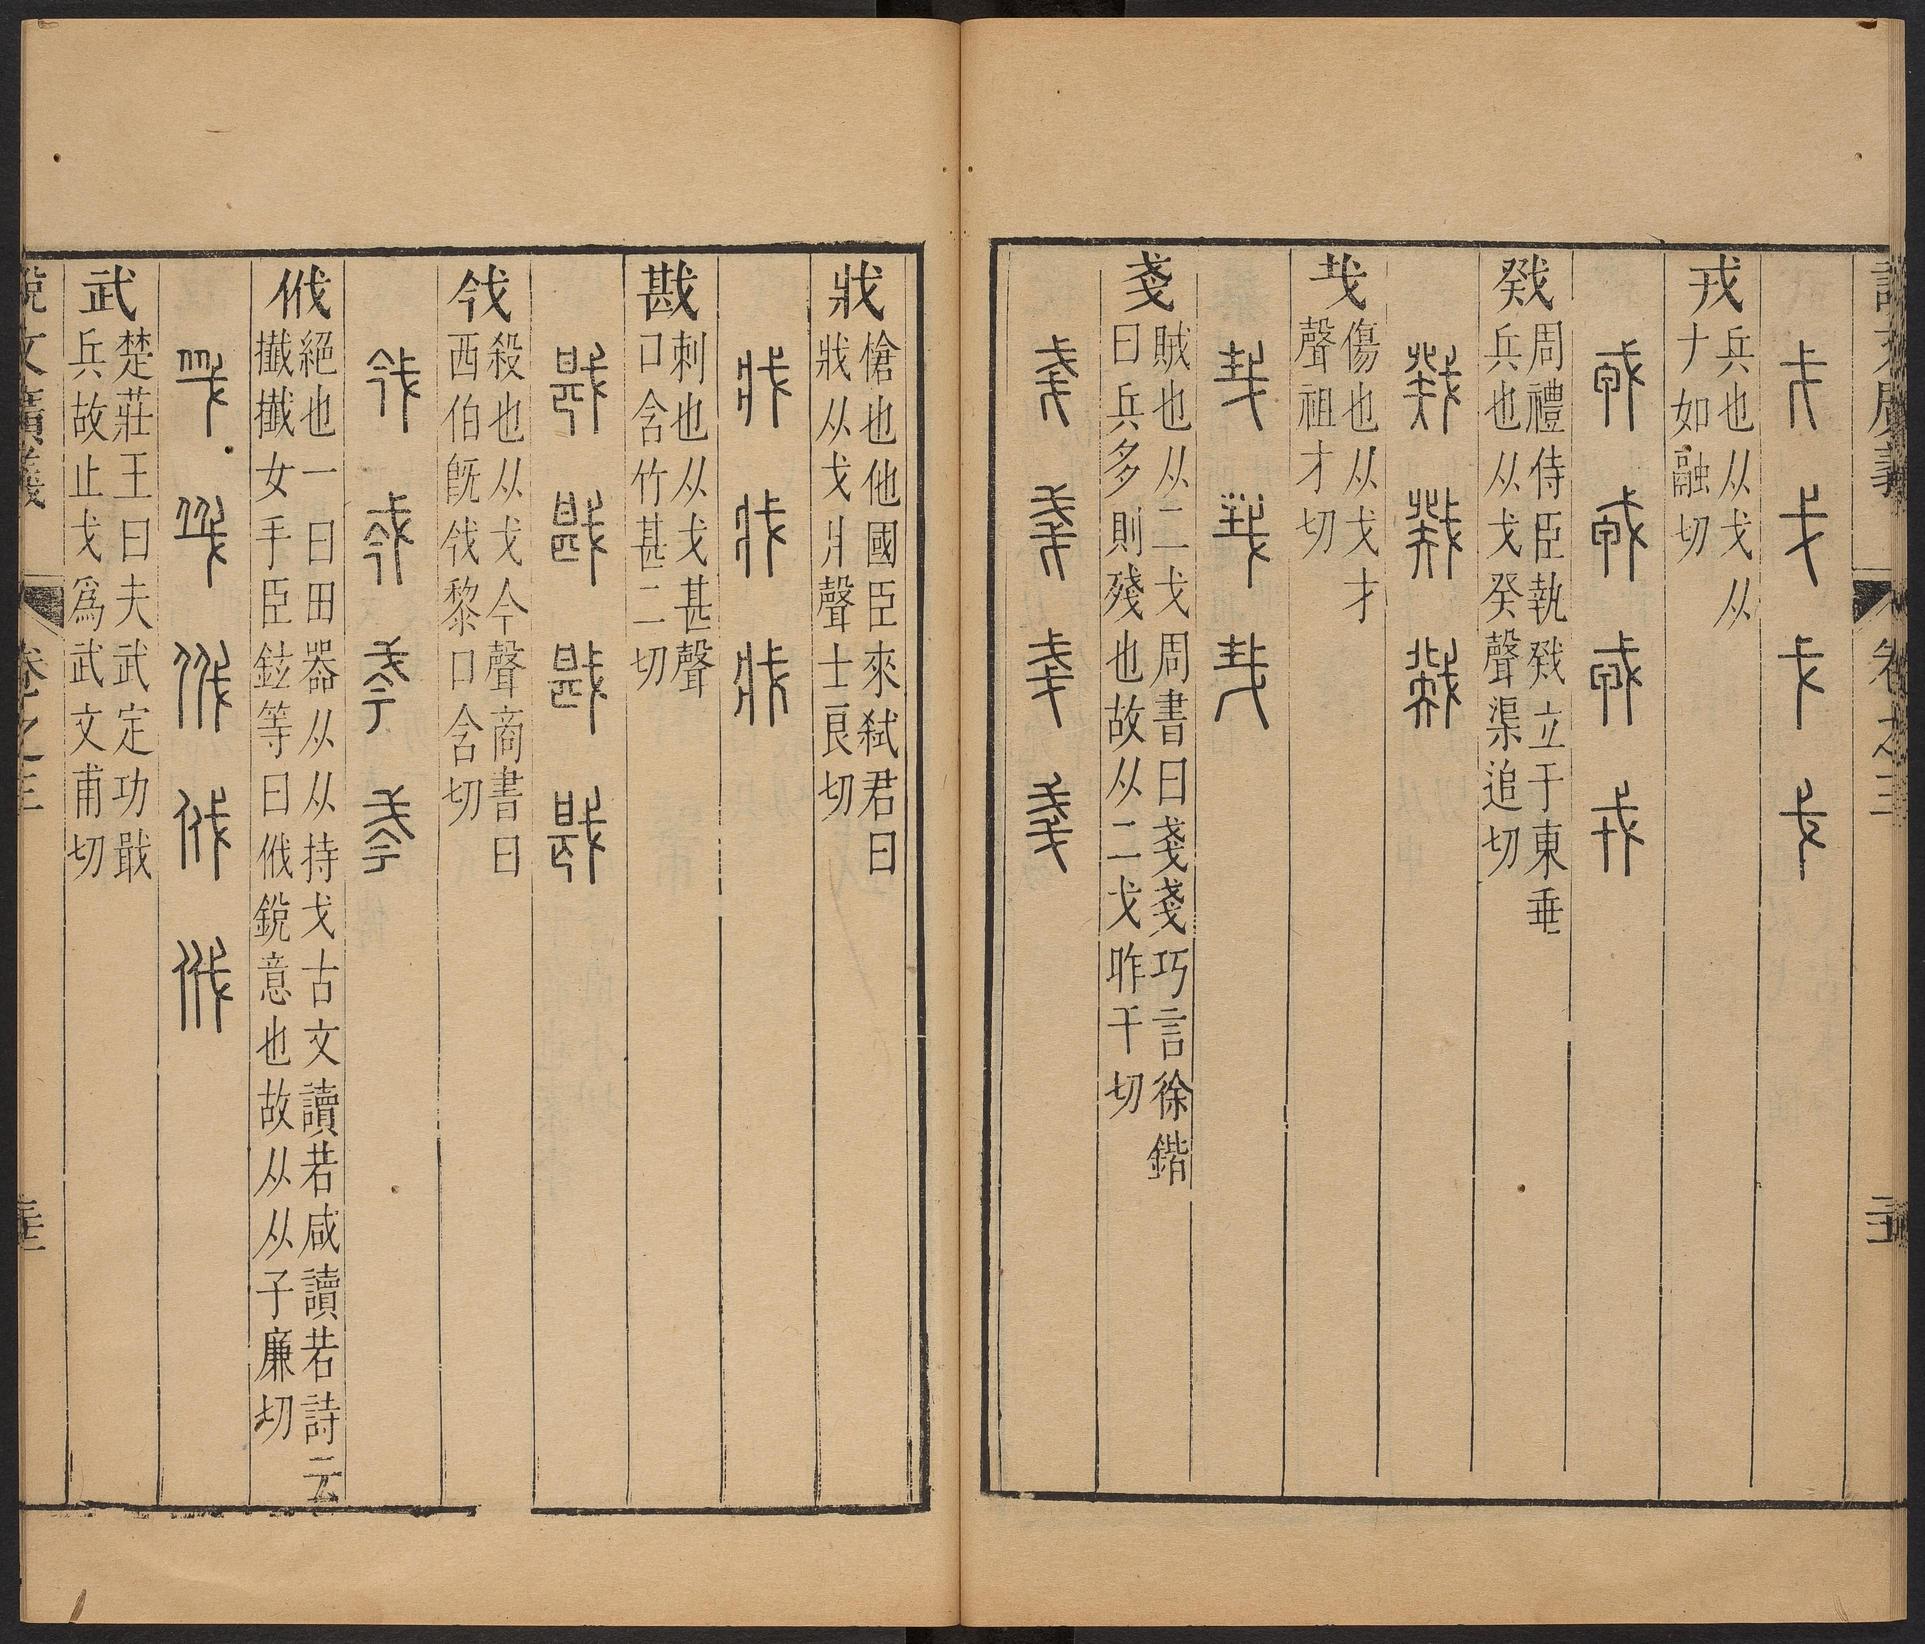 說文廣義
卷之三
戎
兵也从戈从
十如融切
戣
周禮侍臣執戣立于東垂
兵也从戈癸聲渠追切
𢦏
傷也从戈才
聲祖才切
戔
賊也从二戈周書曰戔戔巧言徐鍇
曰兵多則殘也故从二戈昨干切
戕
槍也他國臣來弑君曰
戕从戈爿聲士良切
戡
刺也从戈甚聲
口含竹甚二切
𢦟
殺也从戈今聲商書曰
西伯旣𢦟黎口含切
㦰
絕也一曰田器从从持戈古文讀若咸讀若詩云
攕攕女手臣鉉等曰㦰銳意也故从从子廉切
武
楚莊王曰夫武定功戢
兵故止戈爲武文甫切
說文廣義
卷之三